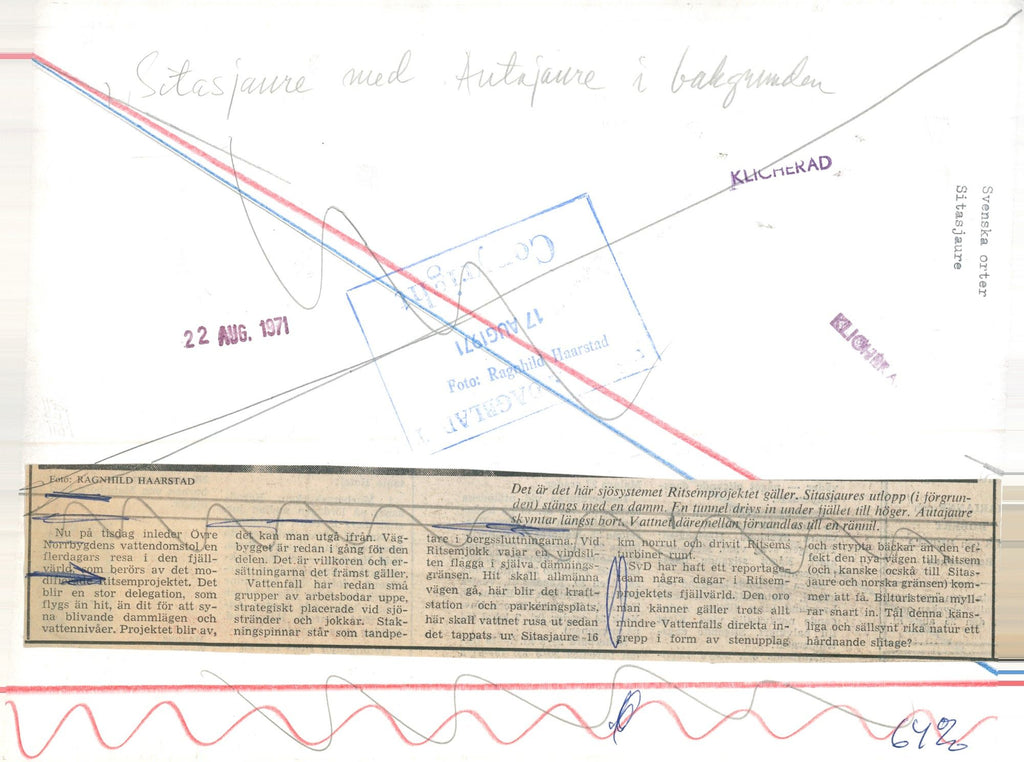 Sitasjaure med Autajaure i bakgrunden
KLICHERAD
Svenska orter
Sitasjaure
22 AUG. 1971
Copyright
17 AUG 1971
Foto: Ragnhild Haarstad
DAGBLAD
KLICHERA
Foto: RAGNHILD HAARSTAD
Det är det här sjösystemet Ritsemprojektet gäller. Sitasjaures utlopp (i förgrun-
den) stängs med en damm. En tunnel drivs in under fjället till höger. Autajaure
skymtar längst bort. Vattnet däremellan förvandlas till en rännil.
Nu på tisdag inleder Övre
Norrbygdens vattendomstol en
flerdagars resa i den fjäll-
värld som berörs av det mo-
Ritsemprojektet. Det
blir en stor delegation, som
flygs än hit, än dit för att sy-
na blivande dammlägen och
vattennivåer. Projektet blir av,
det kan man utgå ifrån. Väg-
bygget är redan i gång för den
delen. Det är villkoren och er-
sättningarna det främst gäller.
Vattenfall har redan små
grupper av arbetsbodar uppe,
strategiskt placerade vid sjö-
stränder och jokkar. Stak-
ningspinnar står som tandpe-
tare i bergssluttningarna. Vid
Ritsemjokk vajar en vindsli-
ten flagga i själva dämnings-
gränsen. Hit skall allmänna
vägen gå, här blir det kraft-
station och parkeringsplats,
här skall vattnet rusa ut sedan
det tappats ur Sitasjaure 16
km norrut och drivit Ritsems
turbiner runt.
SvD har haft ett reportage-
team några dagar i Ritsem-
projektets fjällvärld. Den oro
man känner gäller trots allt
mindre Vattenfalls direkta in-
grepp i form av stenupplag
och strypta bäckar än den ef-
fekt den nya vägen till Ritsem
(och kanske också till Sitas-
jaure och norska gränsen) kom-
mer att få. Bilturisterna myll-
rar snart in. Tål denna käns-
liga och sällsynt rika natur ett
hårdnande slitage?